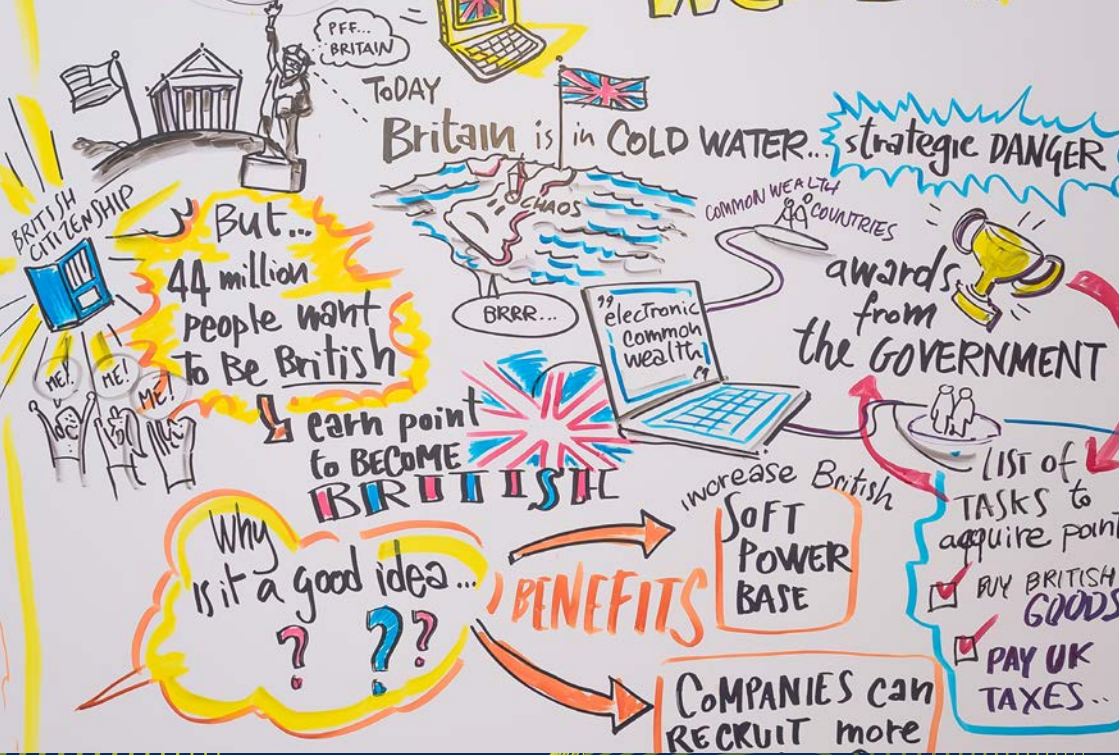 PFF...
BRITAIN
TODAY
Britain is in COLD WATER...
strategic DANGER
CHAOS
BRRR...
COMMON WEALTH
COUNTRIES
BRITISH
CITIZENSHIP
But...
44 million
people want
to Be British
ME!
ME!
ME!
earn point
to BECOME
BRITISH
"electronic
common
wealth"
awards
from
the GOVERNMENT
LIST of
TASKS to
acquire point
BUY BRITISH
GOODS
PAY UK
TAXES..
Why
is it a good idea...
???
BENEFITS
increase British
SOFT
POWER
BASE
COMPANIES can
RECRUIT more